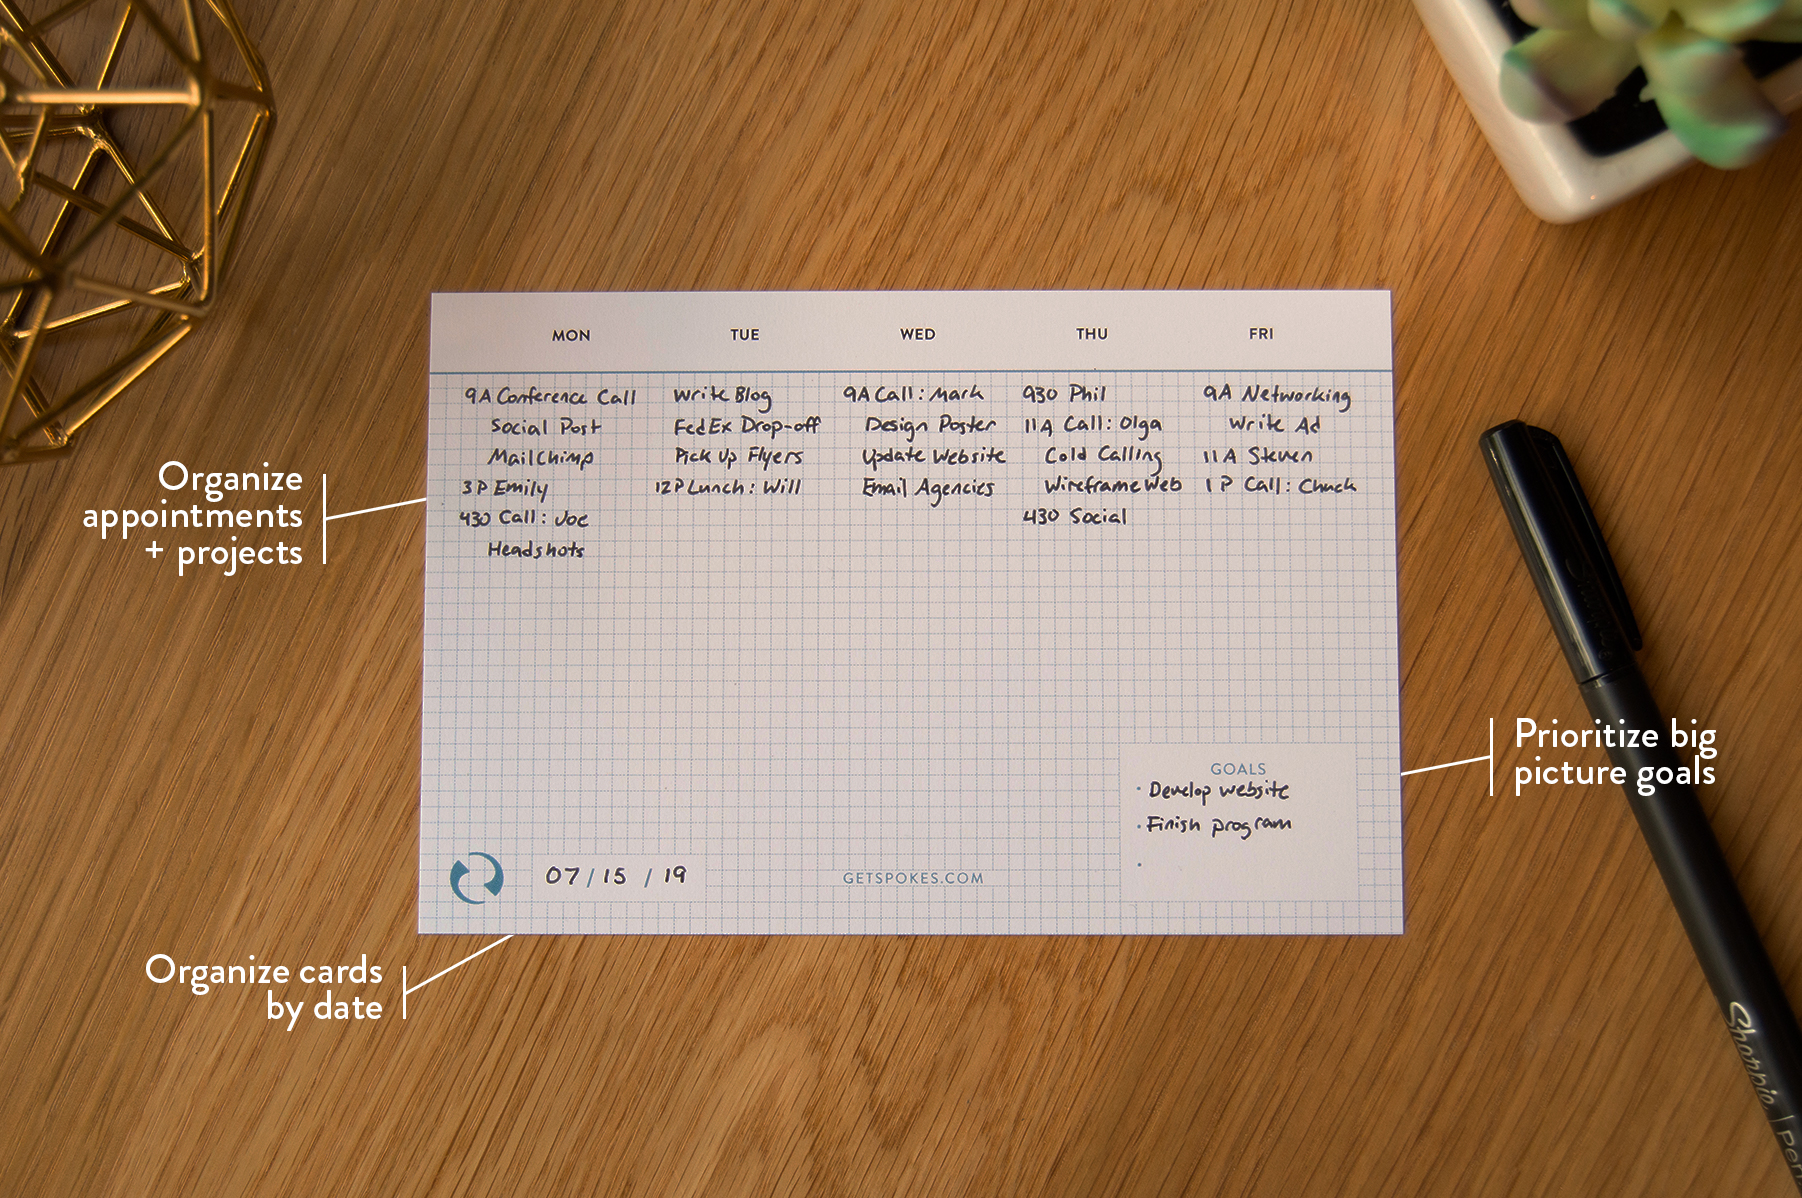 MON TUE WED THU FRI
9A Conference Call
Social Post
MailChimp
3P Emily
430 Call: Joe
Headshots
Write Blog
FedEx Drop-off
Pick Up Flyers
12P Lunch: Will
9A Call: Mark
Design Poster
Update Website
Email Agencies
930 Phil
11A Call: Olga
Cold Calling
Wireframe Web
430 Social
9A Networking
Write Ad
11A Steven
1P Call: Chuck
Organize
appointments
+ projects
Prioritize big
picture goals
GOALS
• Develop website
• Finish program
•
07/15/19
GETSPOKES.COM
Organize cards
by date
Sharpie